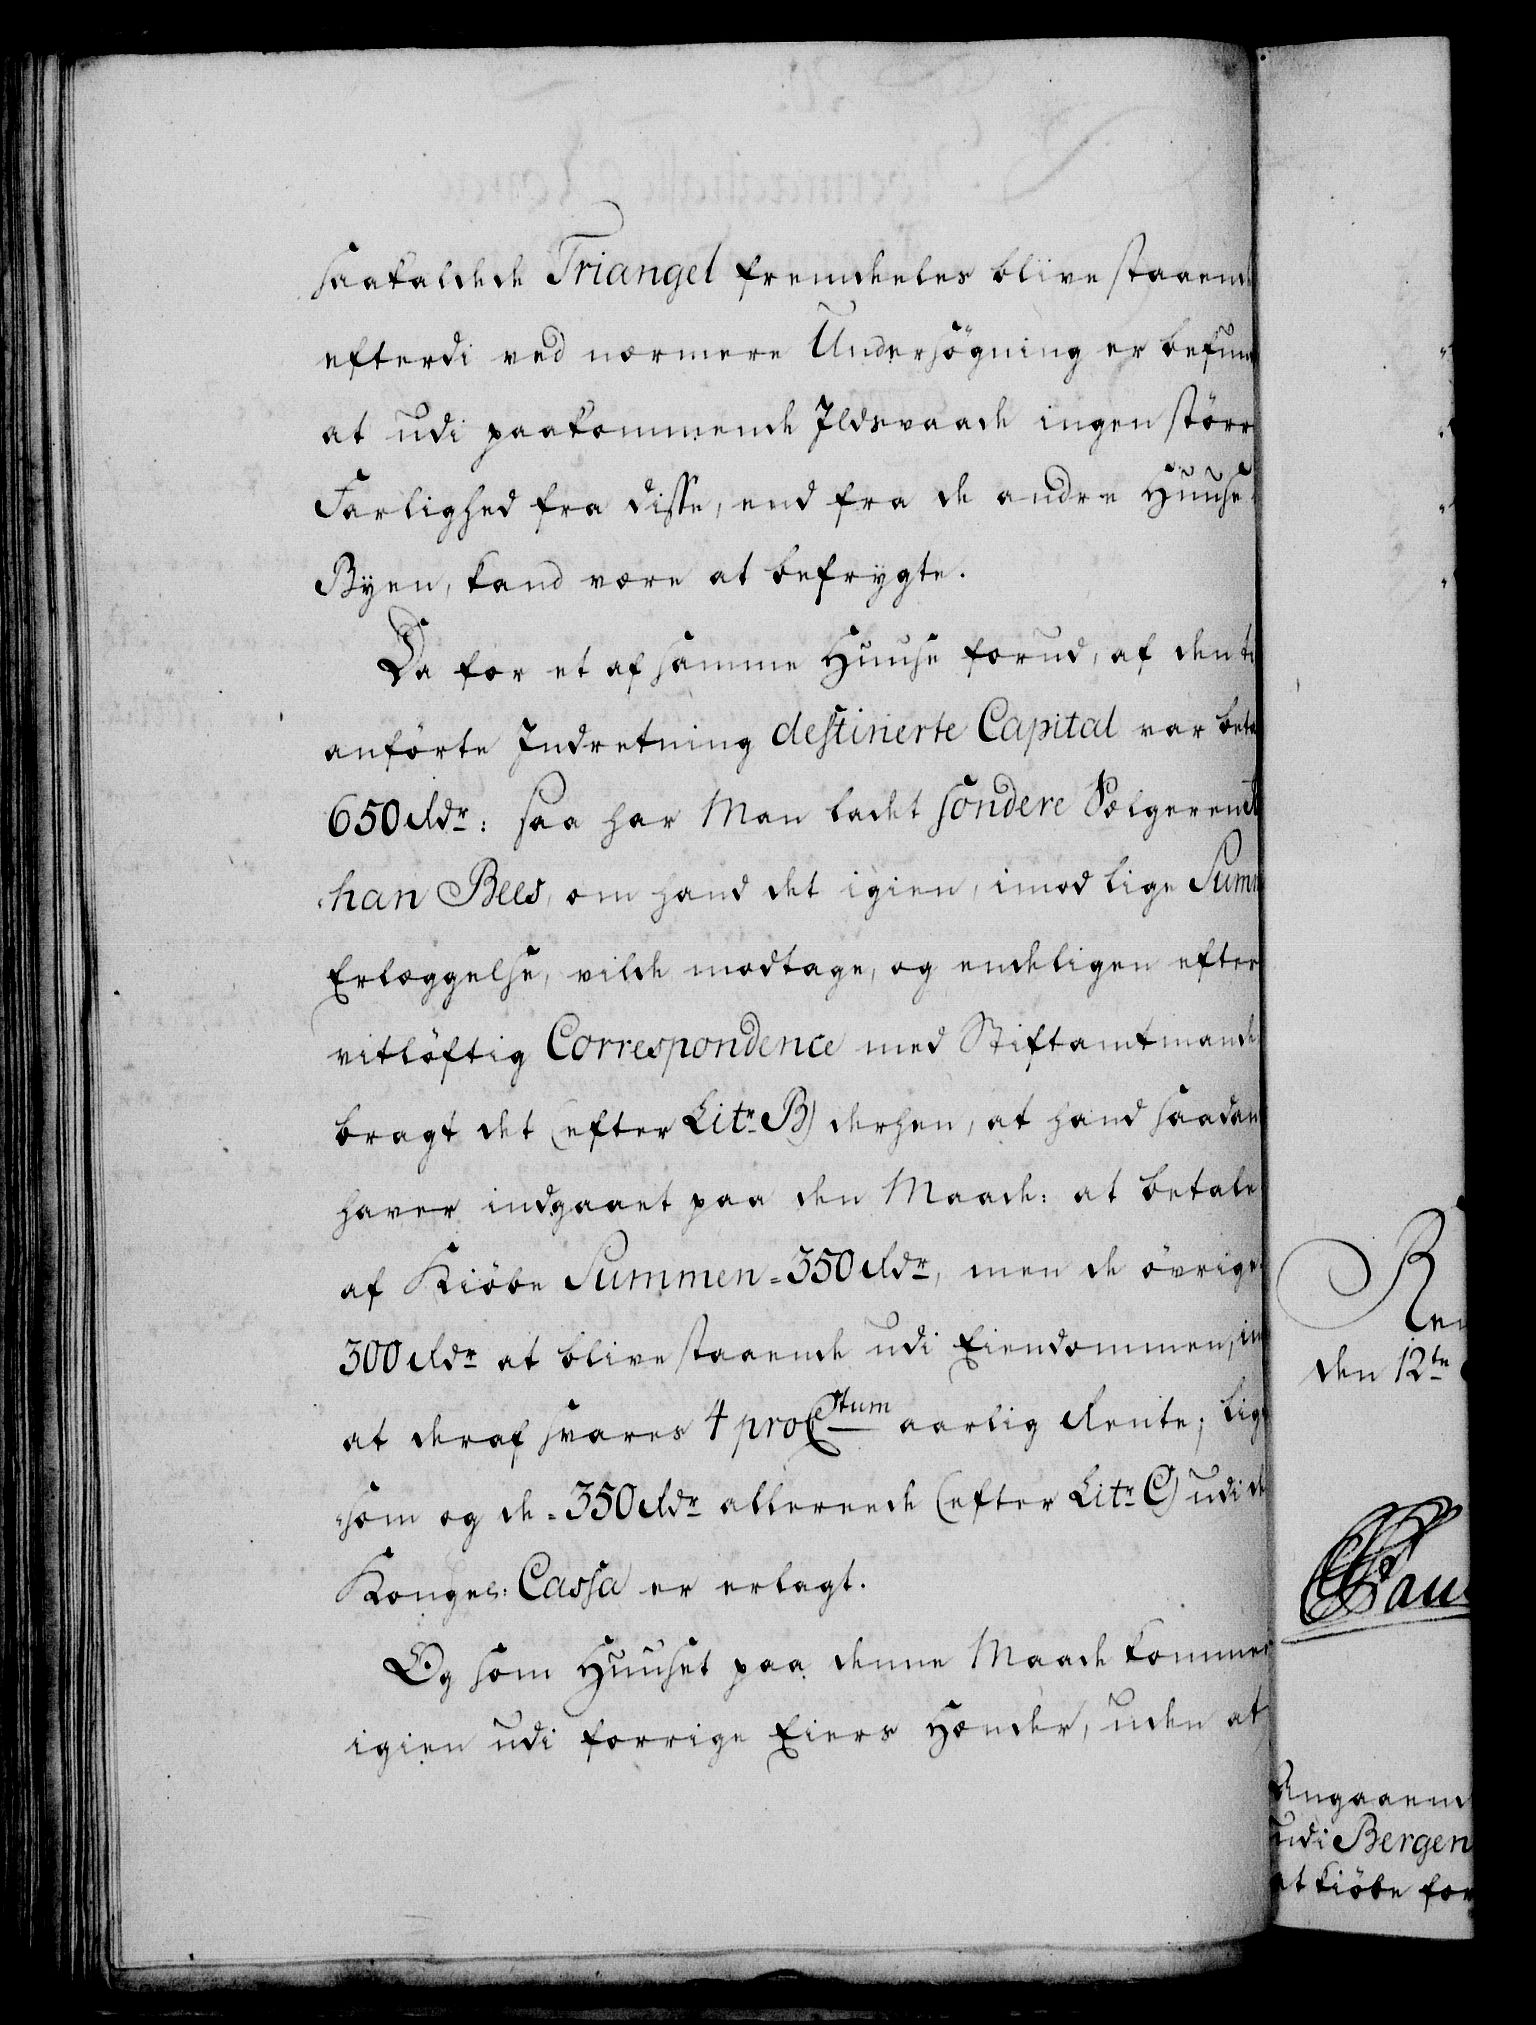 saakaldede Triangel fremdeeles blive staaende
efterdi ved nærmere Undersögning er befun
at udi paakommende Ildsvaade ingen större
Farlighed fra disse, end fra de andre Huuse
Byen, kand være at befrygte.
Da for et af samme Huuse forud, af den ti
anförte Indretning destinerte Capital var beta
650 Rdr: saa har Man ladet sondere Sælgeren
han Bees, om hand det igien, imod lige Summ
Erlæggelse, vilde modtage, og endeligen efter
vitlöftig Correspondence med Stiftamtmande
bragt det (efter Litr B) derhen, at hand saadan
haver indgaaet paa den Maade: at betale
af Kiöbe Summen = 350 Rdr, men de övrige
300 Rdr at blive staaende udi Eiendommen, im
at deraf svares 4 pro Ctum aarlig Rente; lige
som og de = 350 Rdr allereede (efter Litr C) udi de
Kongel: Cassa er erlagt.
Og som Huuset paa denne Maade kommer
igien udi forrige Eiers Hænder, uden at
Ren
den 12te
Angaaend
udi Bergen
at kiöbe for